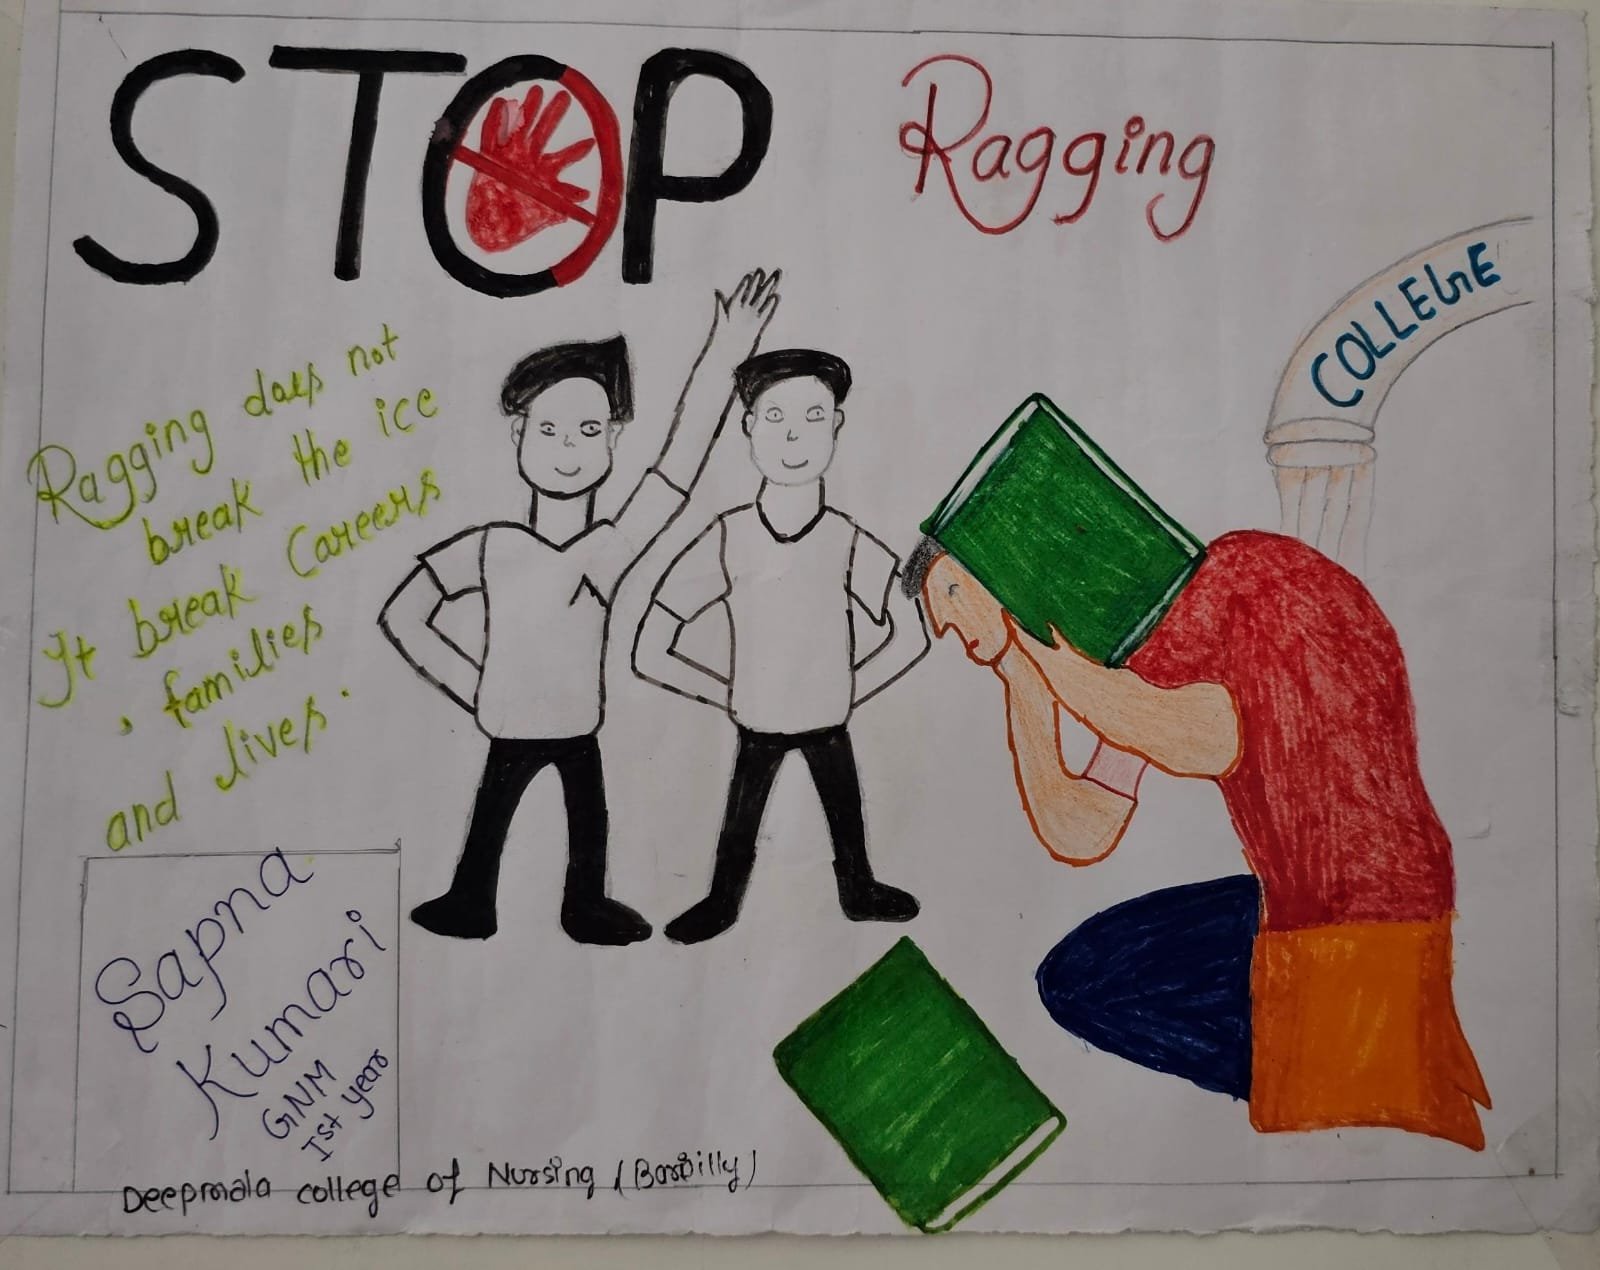 STOP Ragging
COLLEGE
Ragging does not
break the ice
It break careers
, families
and lives.
Sapna
Kumari
GNM
Ist year
Deepmala college of Nursing (Bareilly)